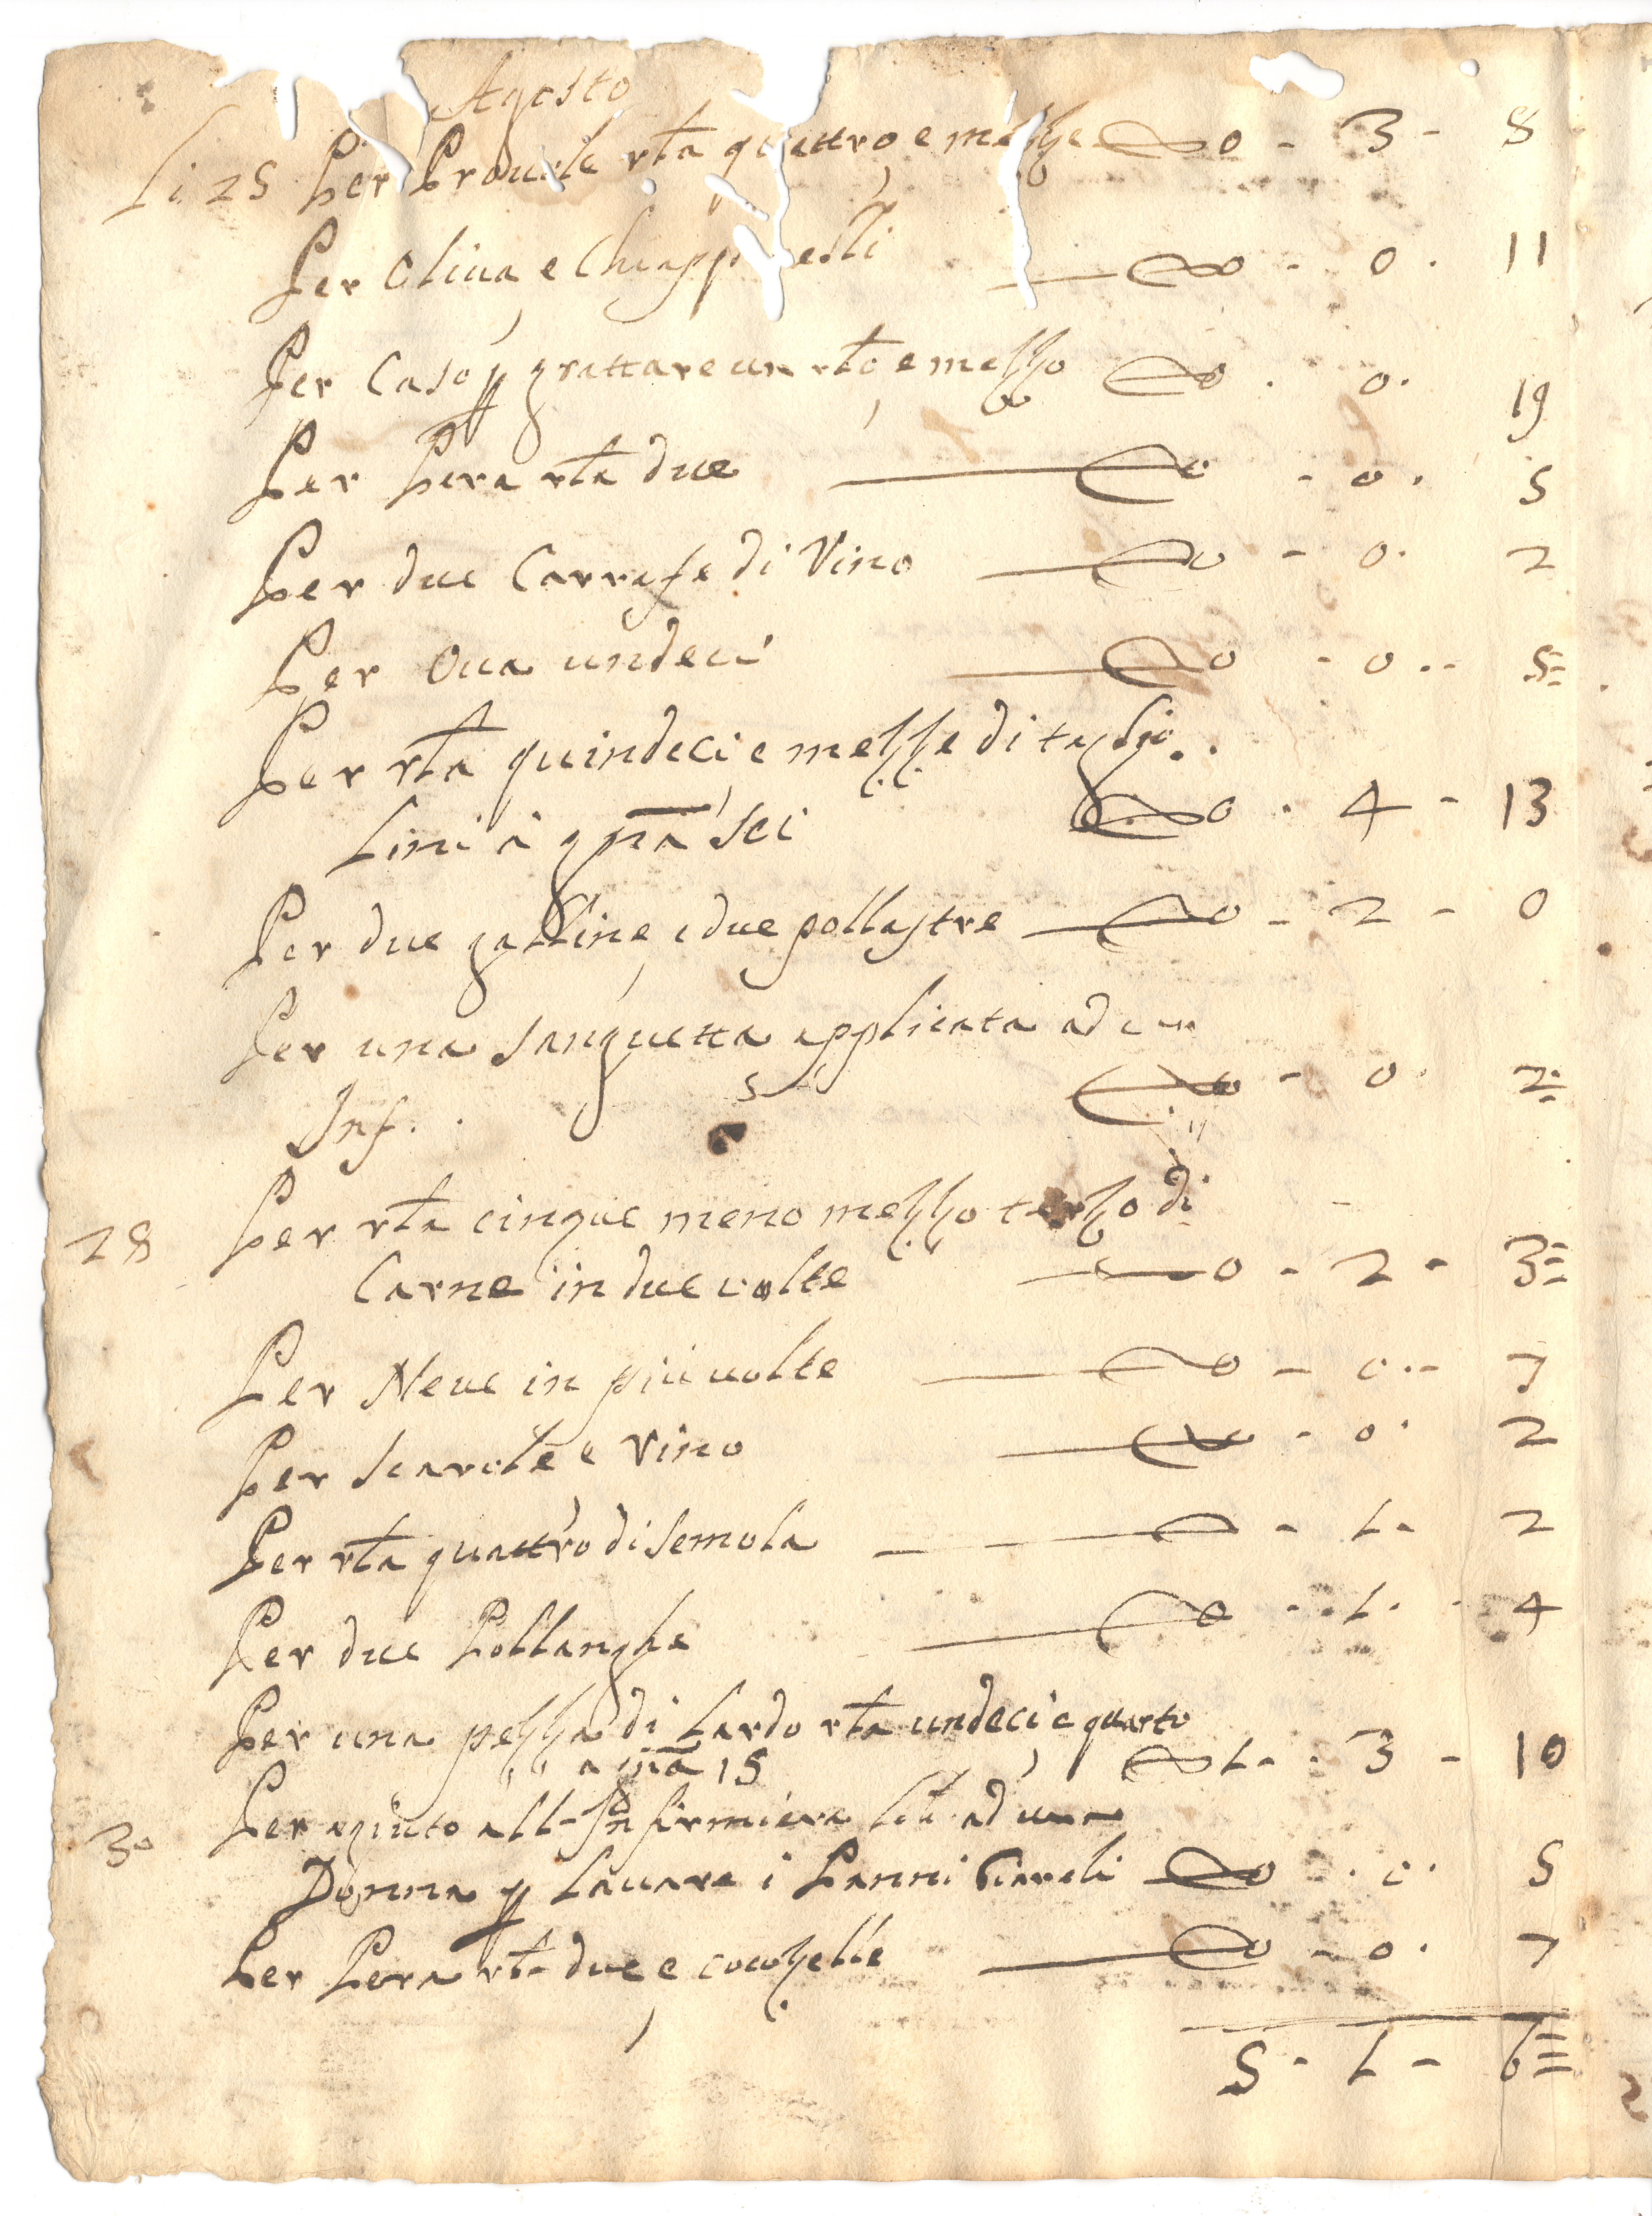 Agosto
Li 25 Per Prouole rla quattro, e mezze 0 - 3 - 8
Per Oliua, e Chiapp elli 0 - 0 - 11
Per Caso p grattare un rlo, e mezzo 0 - 0 - 19
Per Pera rla due 0 - 0 - 5
Per due Carrafe di Vino 0 - 0 - 2
Per Oua undeci 0 - 0 - 5=
Per rla quindeci, e mezze di taglio..
Lini à gna sei 0 - 4 - 13
Per due galline, e due pollastre 0 - 2 - 0
Per una sanguetta applicata ad un
Inf. . 0 - 0 - 2=
28 Per rla cinque meno mezzo terzo di
Carne in due volte 0 - 2 - 3=
Per Neue in più uolte 0 - 0 - 7
Per Scarole e Vino 0 - 0 - 2
Per rla quattro di semola 0 - 1 - 2
Per due Pollanghe 0 - 1 - 4
Per una pezza di Lardo rla undeci, e quarto
a gna 15 1 - 3 - 10
30 Per agiuto all' Infirmiera ad una
Donna p lauare i Panni 0 - 0 - 5
Per Pera rla due, e cocozelle 0 - 0 - 7
5 - 1 - 6≡